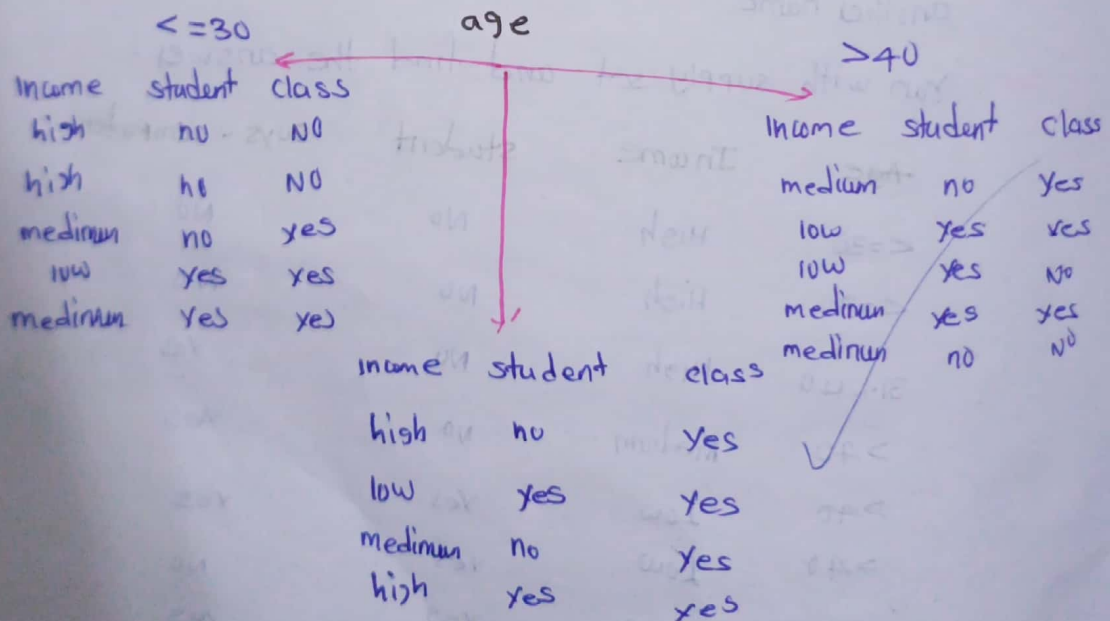 <=30 age >40
Income student class
high no NO
high no NO
medinun no yes
low yes yes
medinum yes yes
Income student class
medium no yes
low yes yes
low yes NO
medinun yes yes
medinun no NO
income student class
high no yes
low yes yes
medinun no yes
high yes yes